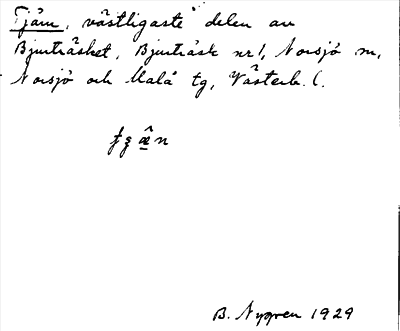 Tjärn, västligaste delen av
Bjurträsket, Bjurträsk nr 1, Norsjö sn,
Norsjö och Malå tg, Västerb. l.
B. Nygren 1929